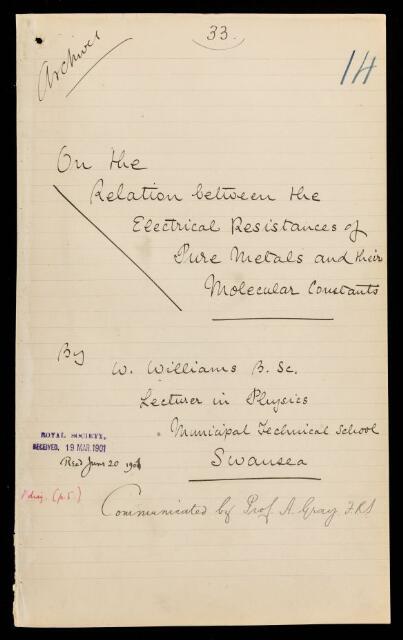 33.
Archives
14
On the
Relation between the
Electrical Resistances of
Pure Metals and their
Molecular Constants
By
W. Williams B. Sc.
Lecturer in Physics
Municipal Technical School
Swansea
ROYAL SOCIETY,
RECEIVED, 19 MAR. 1901
Read June 20 1901
1 diag. (p. 5.)
Communicated by Prof. A. Gray F.R.S